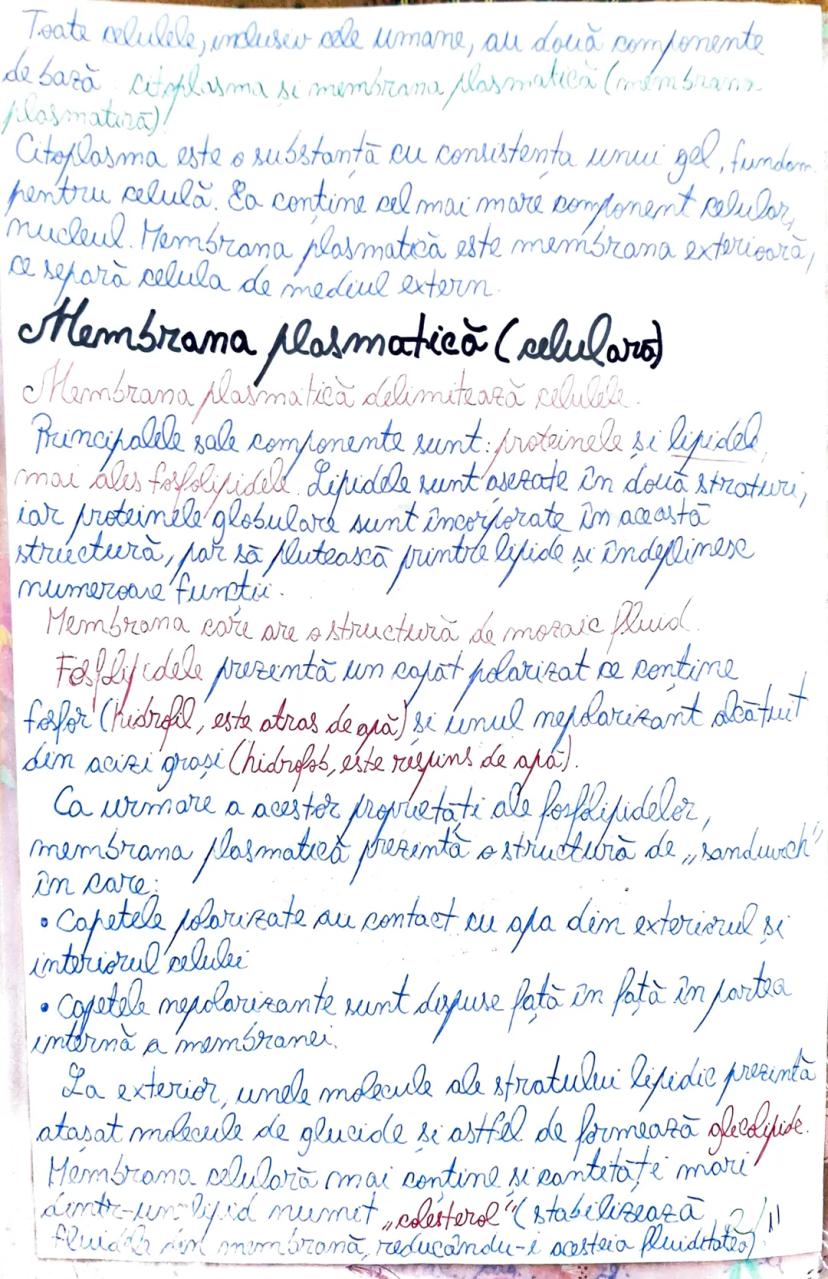 Toate celulele, inclusiv cele umane, au două componente
de bază: citoplasma și membrana plasmatică (membrana
plasmatură)
Citoplasma este o substanță cu consistența unui gel, fundam.
pentru celulă. Ea conține cel mai mare component celular,
nucleul. Membrana plasmatică este membrana exterioară,
ce separă celula de mediul extern.
Membrana plasmatică (celulara)
Membrana plasmatică delimitează celulele.
Principalele sale componente sunt: proteinele și lipidele,
mai ales fosfolipidele. Lipidele sunt așezate în două straturi,
iar proteinele globulare sunt încorporate în această
structură, par să plutească printre lipide și îndeplinesc
numeroase funcții.
Membrana care are o structură de mozaic fluid.
Fosfolipidele prezentă un capăt polarizat ce conține
fosfor (hidrofil, este atras de apă) și unul nepolarizant alcătuit
din acizi grași (hidrofob, este respins de apă).
Ca urmare a acestor proprietăți ale fosfolipidelor,
membrana plasmatică prezintă o structură de „sandwich”
în care:
• Capetele polarizate au contact cu apa din exteriorul și
interiorul celulei
• capetele nepolarizante sunt dispuse față în față în partea
internă a membranei.
La exterior, unele molecule ale stratului lipidic prezintă
atașat molecule de glucide și astfel de formează glicolipide.
Membrana celulară mai conține și cantități mari
dintr-un lipid numit „colesterol” (stabilizează
fluidele din membrană, reducându-i acesteia fluiditatea).
2/11